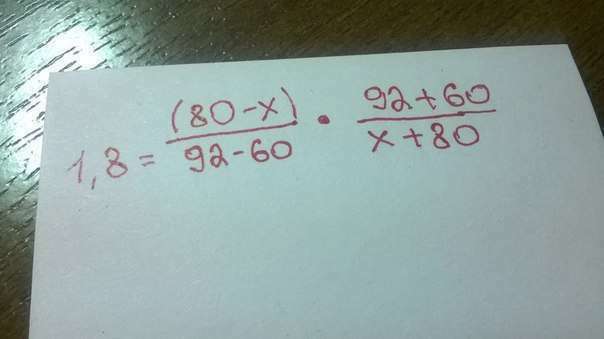 1,8 = (80-x)/(92-60) · (92+60)/(x+80)